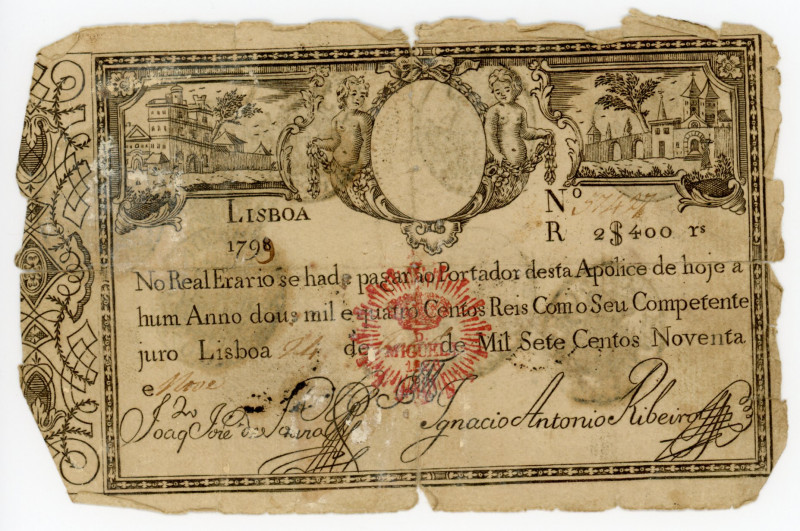 LISBOA
1798 9
Nº
R 2$400 rs
No Real Erario se hade pagar ao Portador desta Apolice de hoje a
hum Anno dous mil e quatro Centos Reis Com o Seu Competente
juro Lisboa de de Mil Sete Centos Noventa
e Nove
D
MIGUEL
Ignacio Antonio Ribeiro